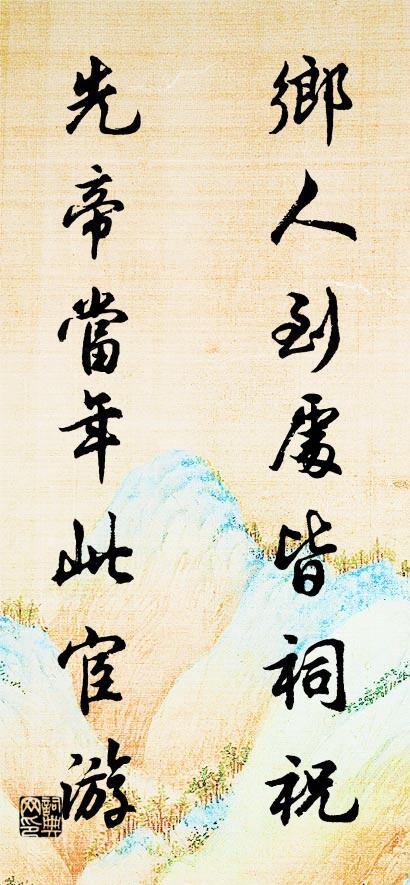 鄉人到處皆祠祝
先帝當年此宦游